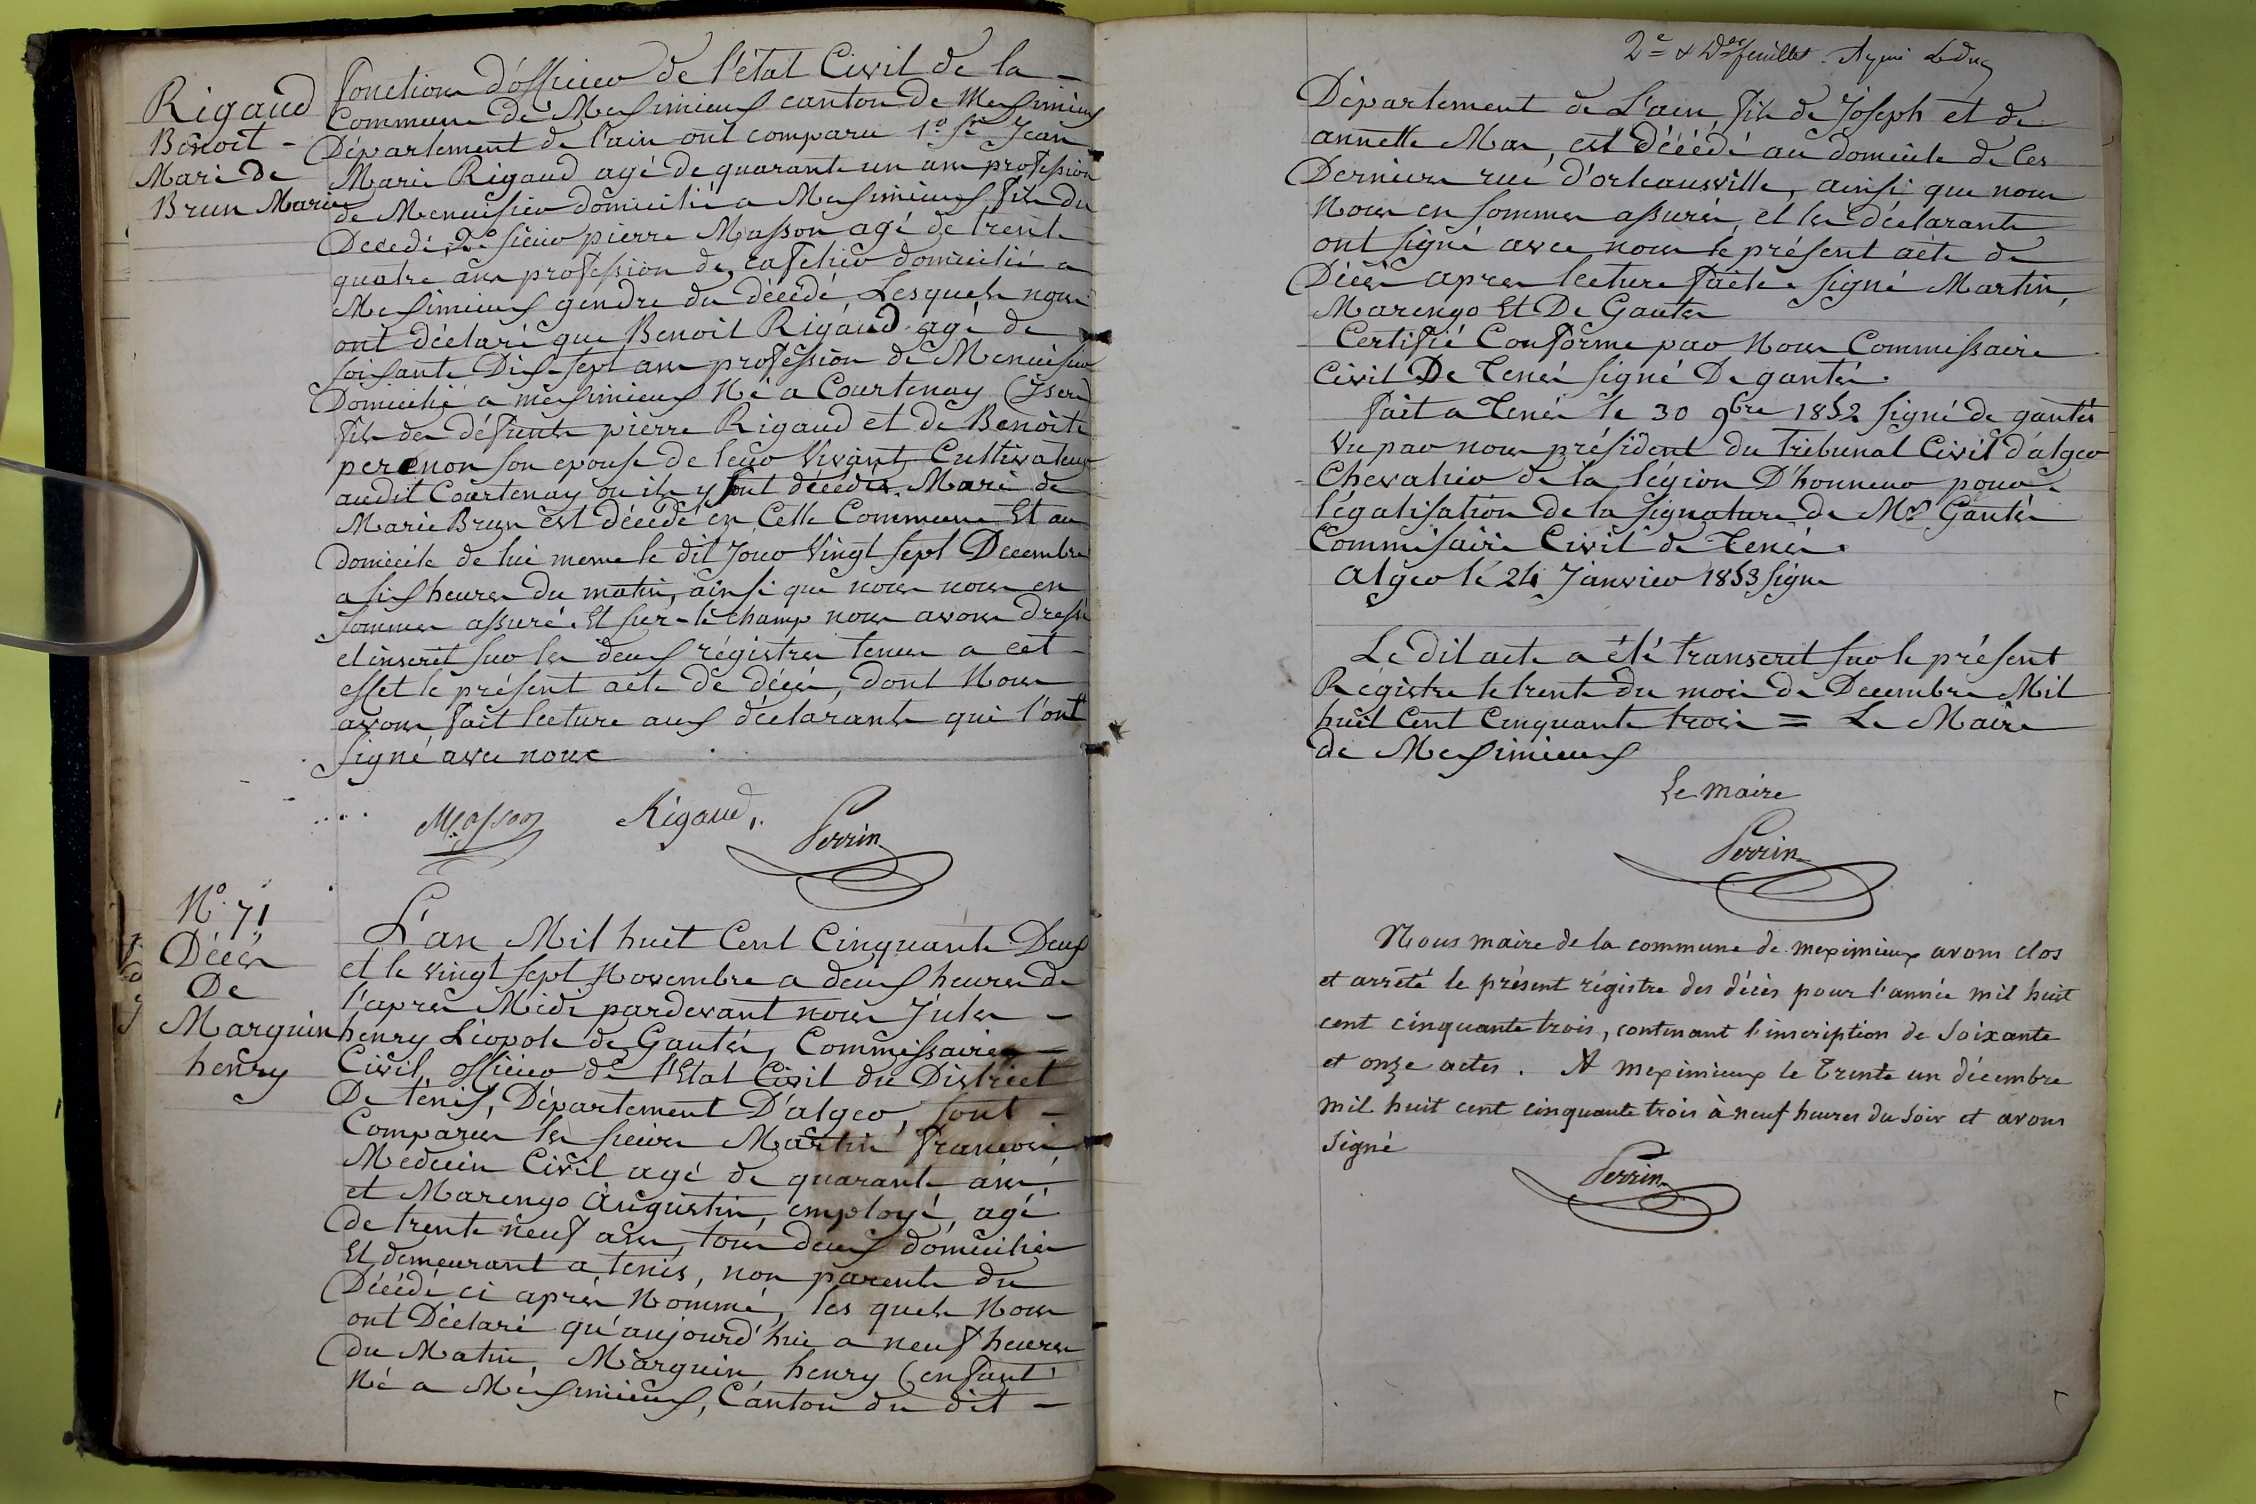 Rigaud
Benoit -
Mari de
Brun Marie
fonction d'officier de l'état Civil de la -
Commune de Mesimieux canton de Mesimieux
Département de l'ain ont comparu 1º Sr Jean
Marie Rigaud agé de quarante un ans profession
de Menuisier domicilié a Mesimieux fils du
Decedé, 2º sieur pierre Masson agé de trente
quatre ans profession de cafetier domicilié a
Mesimieux gendre du décédé, Lesquels nous
ont déclaré que Benoit Rigaud agé de
soisante Dix sept ans profession de Menuisier
Domicilié a mesimieux Né a Courtenay (Isere
fils de défunts pierre Rigaud et de Benoite
perenon son epouse de leur Vivant Cultivateurs
audit Courtenay ou ils y sont décédés. Mari de
Marie Brun est décédé en Cette Commune Et au
domicile de lui meme le dit Jour Vingt sept Decembre
a six heures du matin, ainsi que nous nous en
sommes assuré. Et sur-le champ nous avons dressé
et inscrit sur les deux régistres tenus a cet -
effet le présent acte de décés, dont Nous
avons fait lecture aux déclarants qui l'ont
signé avec nous
Masson Rigaud Perrin
Nº 71
Décés
De
Marguin
henry
L'an Mil huit Cent Cinquante Deux
et le vingt sept Novembre a deux heures de
l'apres Midi pardevant nous Jules -
henry Léopole de Gautés, Commissaire -
Civil, officier de l'Etat Civil du District
De ténés, Département D'alger, sont -
Comparus les sieurs Martin francois
Médecin Civil agé de quarante ans,
et Marengo Augustin, employé, agé
de trente neuf ans, tous deux domicilies
Et demeurant a tenés, non parents du
Décédé ci après Nommé, les quels Nous
ont Déclaré qu'aujourd'hui a neuf heures
du Matin, Marguin, henry (enfant
Né a Mésimieux, Canton du dit -
2e & Der feuillet.
Département de L'ain, fils de Joseph et de
annette Mas, est décédé au domicile de ces
Derniers rue d'orleansville, ainsi que nous
Nous en sommes assurés, et les déclarants
ont signé avec nous le présent acte de
Décés apres lecture faite. signé Martin,
Marengo Et De Gautes
Certifié Conforme par Nous Commissaire
Civil De Tenés signé De gantés.
fait a Tenés le 30 9bre 1852 signé de gantés
Vu par nous président du Tribunal Civil d'alger
Chevalier de la légion D'honneur pour
légalisation de la signature de Mr Gantés
Commisaire Civil de Tenés.
Alger le 24 Janvier 1853 signe
Le dit acte a été transcrit sur le présent
Régistre le trente du mois de Decembre Mil
huit Cent Cinquante trois = Le Maire
de Mesimieux
Le maire
Perrin
Nous maire de la commune de meximieux avons clos
et arrêté le présent régistre des décès pour l'année mil huit
cent cinquante trois, contenant l'inscription de Soixante
et onze actes. A meximieux le Trente un décembre
mil huit cent cinquante trois à neuf heures du Soir et avons
Signé
Perrin